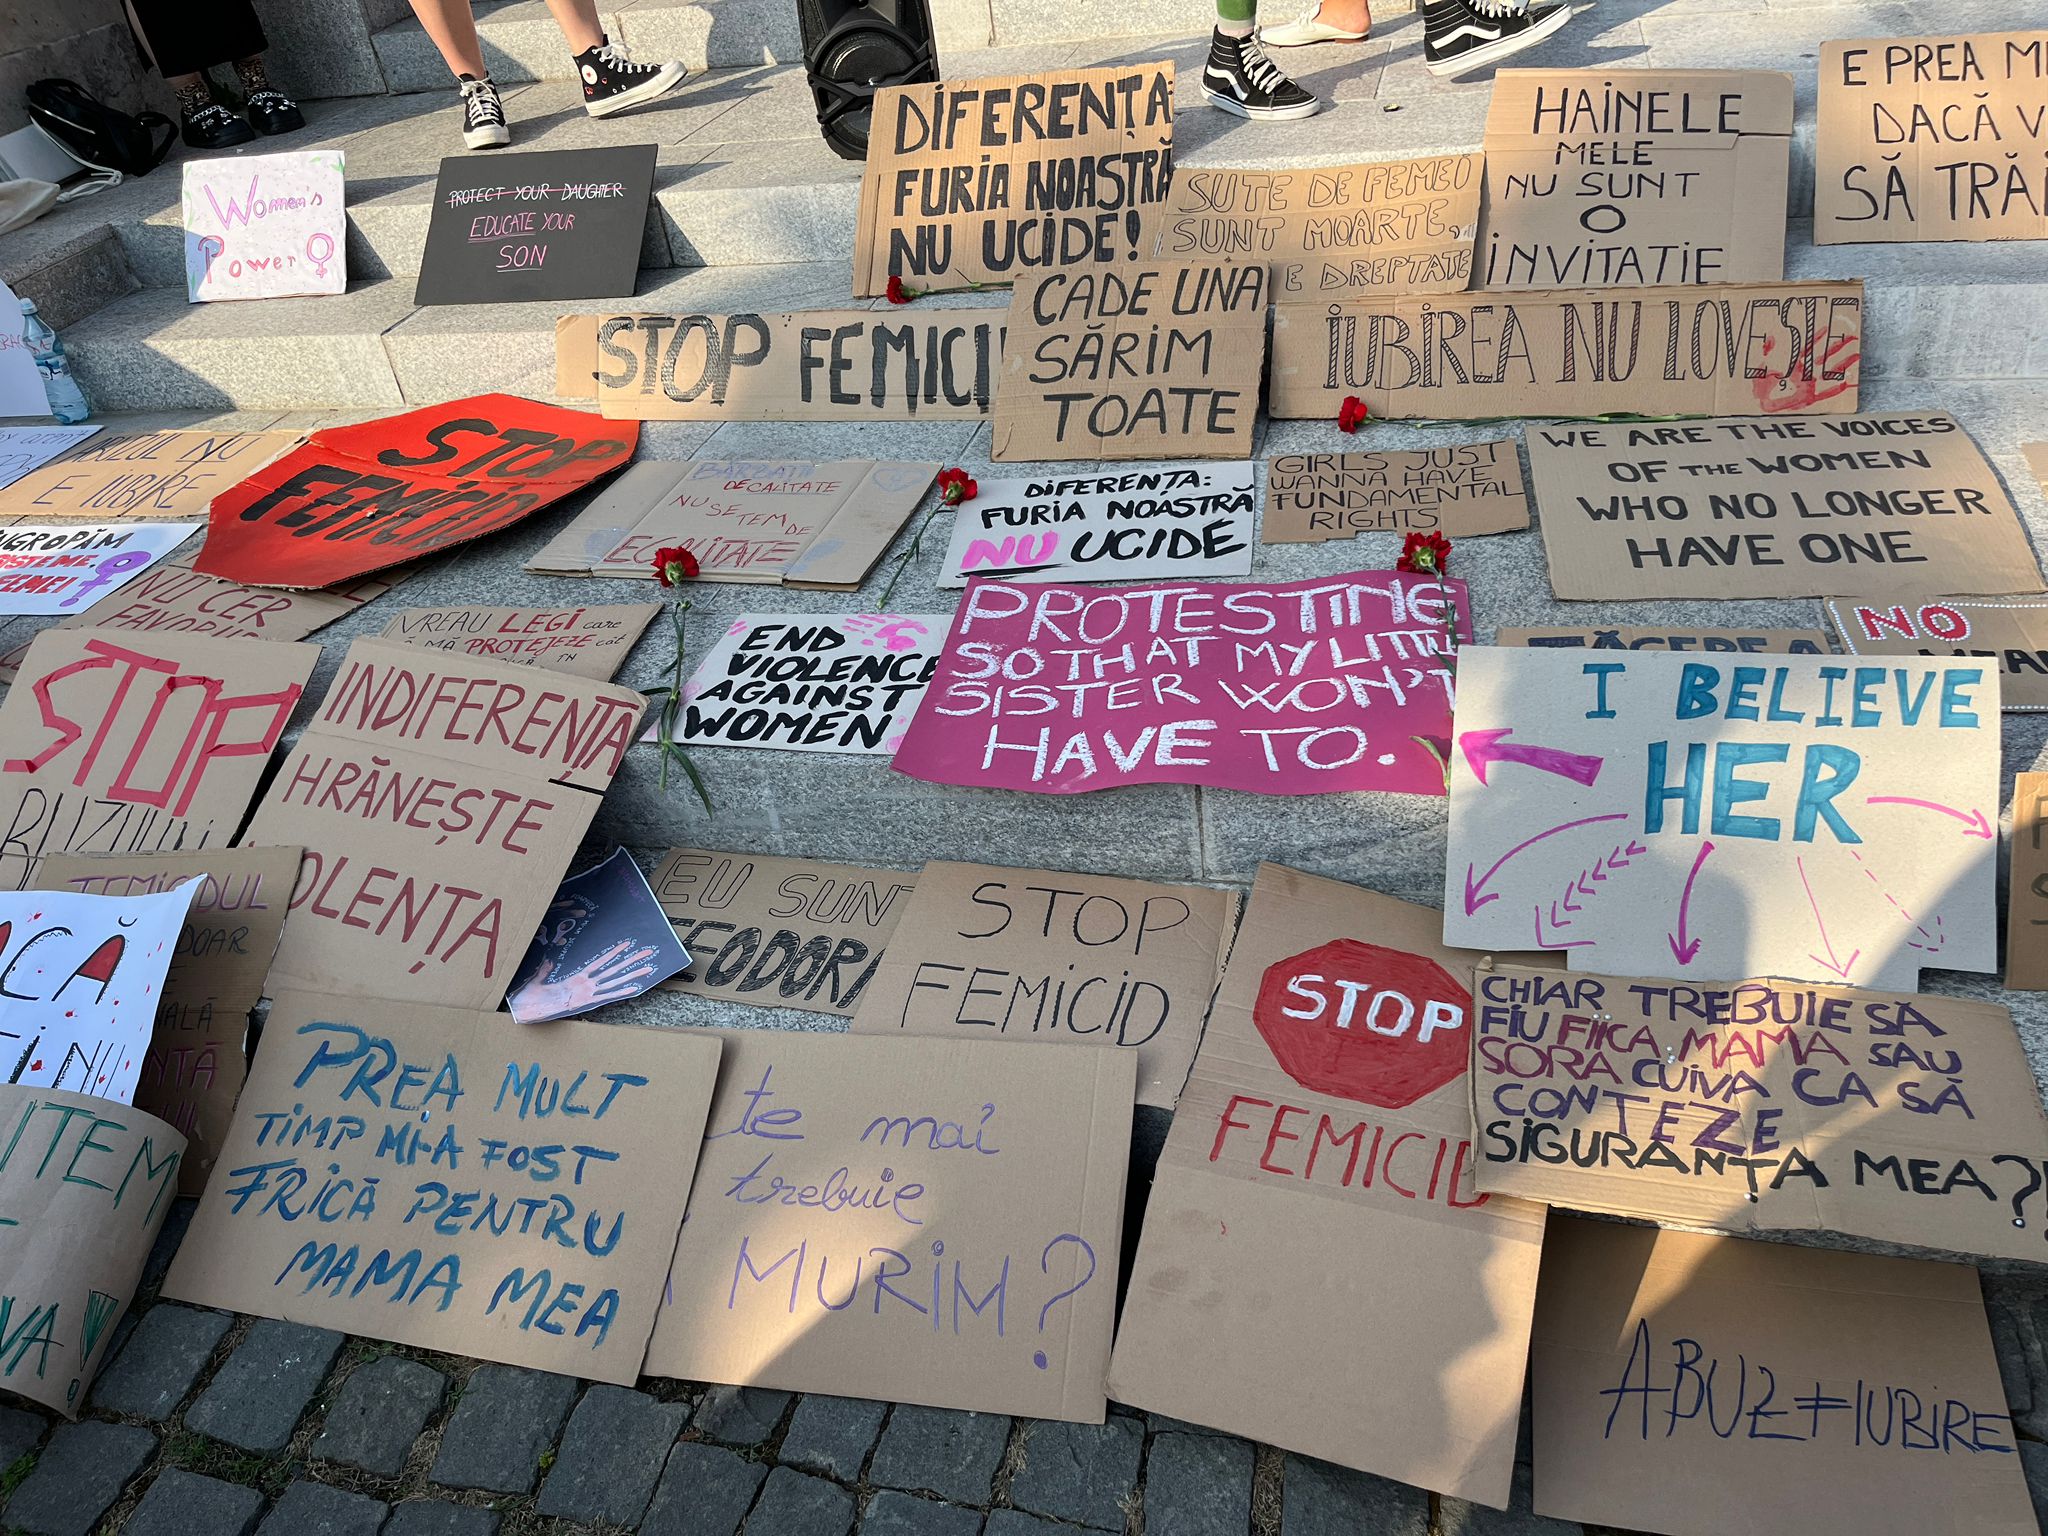 Women's
Power
PROTECT YOUR DAUGHTER
EDUCATE YOUR
SON
DIFERENȚA
FURIA NOASTRĂ
NU UCIDE!
SUTE DE FEMEI
SUNT MOARTE,
E DREPTATE
HAINELE
MELE
NU SUNT
O
INVITATIE
E PREA
DACĂ
SĂ
STOP
CADE UNA
SĂRIM
TOATE
IUBIREA NU LOVEȘTE
ABUZUL NU
E IUBIRE
STOP
FEMICID
BĂRBAȚII
DE CALITATE
NU SE TEM DE
EGALITATE
DIFERENȚA:
FURIA NOASTRĂ
NU UCIDE
GIRLS JUST
WANNA HAVE
FUNDAMENTAL
RIGHTS
WE ARE THE VOICES
OF THE WOMEN
WHO NO LONGER
HAVE ONE
NU CER
VREAU LEGI care
SĂ MĂ PROTEJEZE cât
END
VIOLENCE
AGAINST
WOMEN
PROTESTING
SO THAT MY LITTLE
SISTER WON'T
HAVE TO.
NO
I BELIEVE
HER
STOP
INDIFERENȚA
HRĂNEȘTE
VIOLENȚA
EU SUNT
STOP
FEMICID
STOP
FEMICID
CHIAR TREBUIE SĂ
FIU FIICA MAMA SAU
SORA CUIVA CA SĂ
CONTEZE
SIGURANȚA MEA?!
PREA MULT
TIMP MI-A FOST
FRICĂ PENTRU
MAMA MEA
mai
trebuie
MURIM?
ABUZ≠IUBIRE